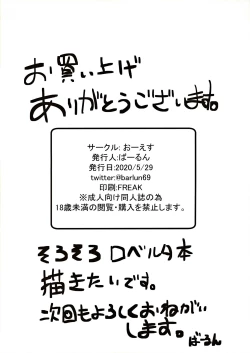 お買い上げ
ありがとうございます。
サークル: おーえす
発行人:ばーるん
発行日:2020/5/29
twitter:@barlun69
印刷:FREAK
※成人向け同人誌の為
18歳未満の閲覧・購入を禁止します。
そろそろロベルタ本
描きたいです。
次回もよろしくおねがい
します。
ばーるん